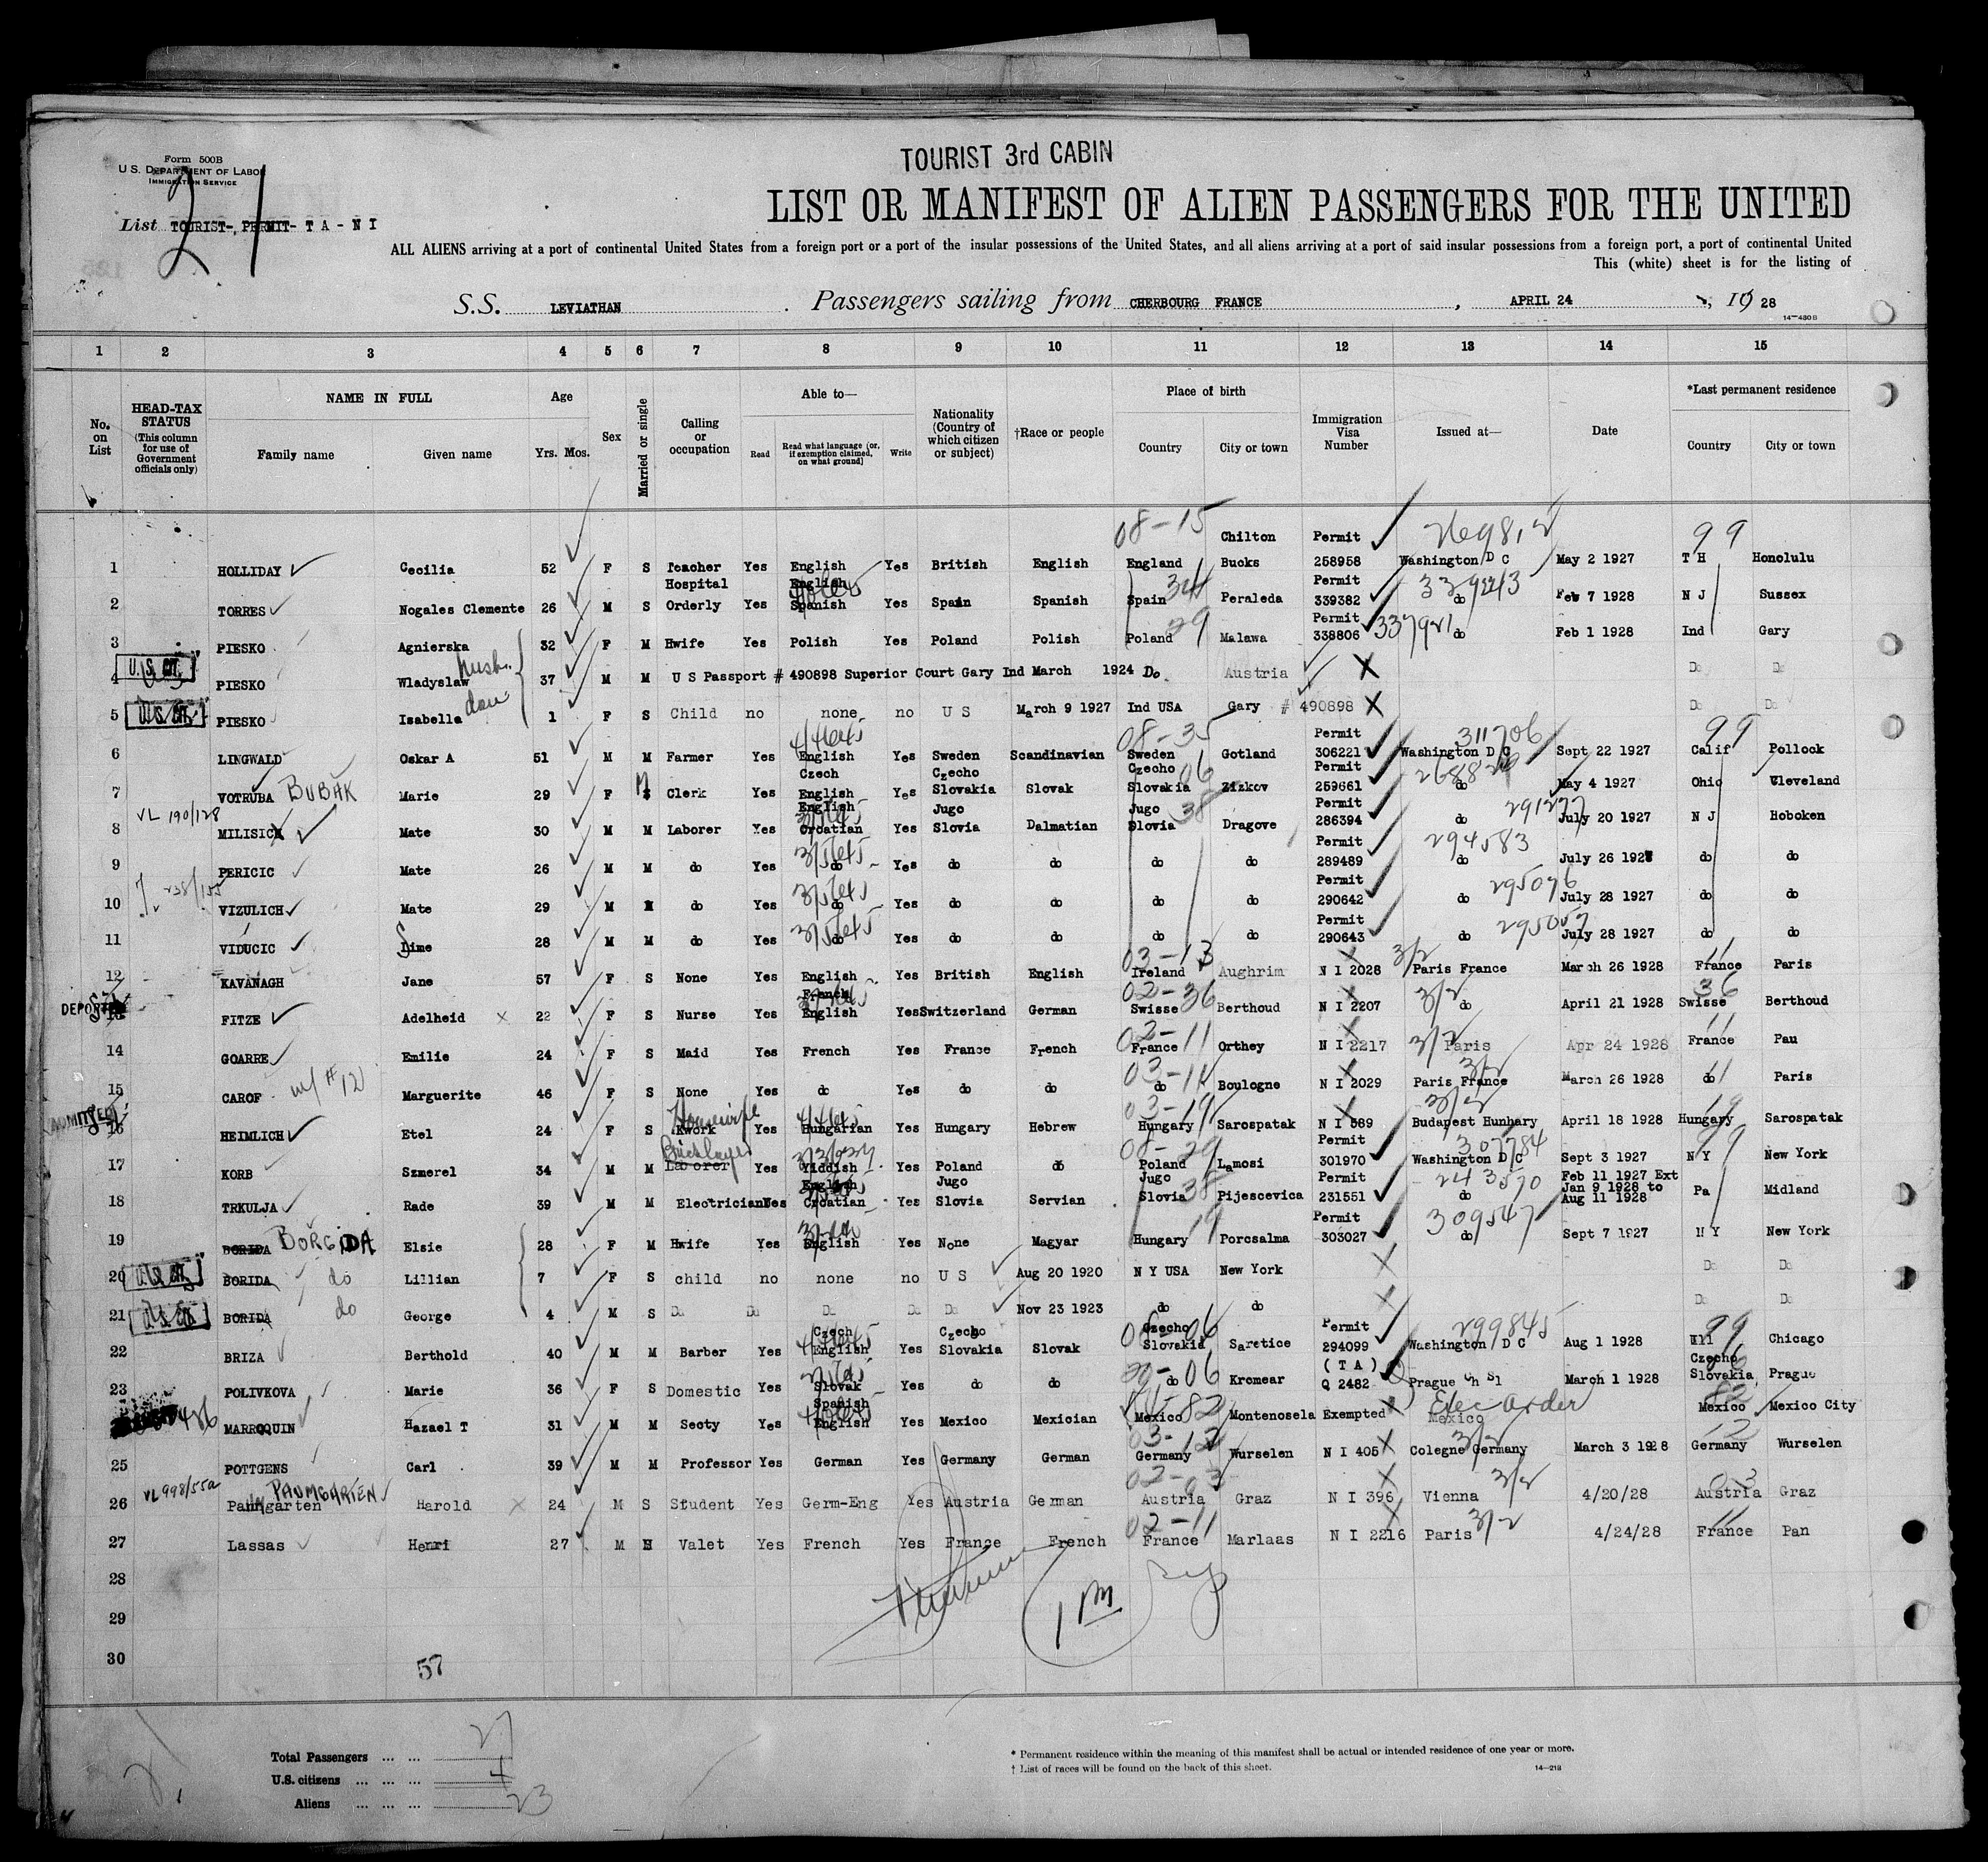 TOURIST 3rd CABIN
Form 500B
U. S. DEPARTMENT OF LABOR
IMMIGRATION SERVICE
21
List TOURIST-, PERMIT- T A - N I
LIST OR MANIFEST OF ALIEN PASSENGERS FOR THE UNITED
ALL ALIENS arriving at a port of continental United States from a foreign port or a port of the insular possessions of the United States, and all aliens arriving at a port of said insular possessions from a foreign port, a port of continental United
This (white) sheet is for the listing of
S.S. LEVIATHAN Passengers sailing from CHERBOURG FRANCE , APRIL 24 , 1928
14-480B
1 2 3 4 5 6 7 8 9 10 11 12 13 14 15
No. on List HEAD-TAX STATUS (This column for use of Government officials only) NAME IN FULL Family name Given name Age Yrs. Mos. Sex Married or single Calling or occupation Able to— Read Read what language (or, if exemption claimed, on what ground) Write Nationality (Country of which citizen or subject) †Race or people Place of birth Country City or town Immigration Visa Number Issued at— Date *Last permanent residence Country City or town
08-15 Chilton Permit 99
1 HOLLIDAY Cecilia 52 F S Teacher Yes English Yes British English England Bucks 258958 Washington D C May 2 1927 T H Honolulu
Hospital English Permit
2 TORRES Nogales Clemente 26 M S Orderly Yes Spanish Yes Spain Spanish Spain 34 Peraleda 339382 do Feb 7 1928 N J Sussex
Permit
3 PIESKO Agnierska 32 F M Hwife Yes Polish Yes Poland Polish Poland 29 Malawa 338806 337921 do Feb 1 1928 Ind Gary
4 U.S. CIT. PIESKO Wladyslaw husb. 37 M M U S Passport # 490898 Superior Court Gary Ind March 1924 Do. Austria X Do Do
5 U.S. CIT. PIESKO Isabella dau 1 F S Child no none no U S March 9 1927 Ind USA Gary # 490898 X Do Do
08-35 Permit 311706 99
6 LINGWALD Oskar A 51 M M Farmer Yes English Yes Sweden Scandinavian Sweden Gotland 306221 Washington D C Sept 22 1927 Calif Pollock
Czech Czecho Czecho 06 Permit
7 VOTRUBA BUBAK Marie 29 F M Clerk Yes English Yes Slovakia Slovak Slovakia Zizkov 259661 do May 4 1927 Ohio Cleveland
VL 190/128 English Jugo Jugo 38 Permit 291277
8 MILISICH Mate 30 M M Laborer Yes Croatian Yes Slovia Dalmatian Slovia Dragove 286394 do July 20 1927 N J Hoboken
Permit 294583
9 PERICIC Mate 26 M M do Yes do Yes do do do do 289489 do July 26 1927 do do
Permit 295096
10 VIZULICH Mate 29 M M do Yes do Yes do do do do 290642 do July 28 1927 do do
Permit 295057
11 VIDUCIC Sime 28 M M do Yes do Yes do do do do 290643 do July 28 1927 do do
03-13 3/2 11
12 KAVANAGH Jane 57 F S None Yes English Yes British English Ireland Aughrim N I 2028 Paris France March 26 1928 France Paris
DEPORTED French 02-36 3/2 36
13 FITZE Adelheid 22 F S Nurse Yes English Yes Switzerland German Swisse Berthoud N I 2207 do April 21 1928 Swisse Berthoud
02-11 3/2 11
14 GOARRE Emilie 24 F S Maid Yes French Yes France French France Orthey N I 2217 Paris Apr 24 1928 France Pau
03-11 3/2 11
15 CAROF w/ #12 Marguerite 46 F S None Yes do Yes do do do Boulogne N I 2029 Paris France March 26 1928 do Paris
ADMITTED Housewife 03-19 3/2 19
16 HEIMLICH Etel 24 F S Hwork Yes Hungarian Yes Hungary Hebrew Hungary Sarospatak N I 569 Budapest Hunhary April 18 1928 Hungary Sarospatak
Bricklayer 08-29 Permit 307784 99
17 KORB Szmerel 34 M M Laborer Yes Yiddish Yes Poland do Poland Lamosi 301970 Washington D C Sept 3 1927 N Y New York
English Jugo Jugo 38 Permit 243570 Feb 11 1927 Ext
Jan 9 1928 to
18 TRKULJA Rade 39 M M Electrician Yes Croatian Yes Slovia Servian Slovia Pijescevica 231551 do Aug 11 1928 Pa Midland
19 Permit 309547
19 BORIDA BORGIDA Elsie 28 F M Hwife Yes English Yes None Magyar Hungary Porcsalma 303027 do Sept 7 1927 N Y New York
20 U.S. CIT. BORIDA do Lillian 7 F S child no none no U S Aug 20 1920 N Y USA New York Do Do
21 U.S. CIT. BORIDA do George 4 M S Do Do Do Do Do Nov 23 1923 do do Do Do
Czech Czecho Czecho 08-06 Permit 299845 99
22 BRIZA Berthold 40 M M Barber Yes English Yes Slovakia Slovak Slovakia Saretice 294099 Washington D C Aug 1 1928 Ill Chicago
06 (TA) Czecho
23 POLIVKOVA Marie 36 F S Domestic Yes Slovak Yes do do do Kromear Q 2482 Prague Ch Sl March 1 1928 Slovakia Prague
486 Spanish 82 Exec order 82
MARROQUIN Hazael T 31 M M Secty Yes English Yes Mexico Mexician Mexico Montenosela Exempted Mexico Mexico Mexico City
03-12 3/2 12
25 POTTGENS Carl 39 M M Professor Yes German Yes Germany German Germany Wurselen N I 405 Cologne Germany March 3 1928 Germany Wurselen
VL 998/552 PAUMGARTEN 02-03 3/2 03
26 Paumgarten Harold 24 M S Student Yes Germ-Eng Yes Austria German Austria Graz N I 396 Vienna 4/20/28 Austria Graz
02-11 3/2 11
27 Lassas Henri 27 M Valet Yes French Yes France French France Marlaas N I 2216 Paris 4/24/28 France Pan
28
29
30
1 M
57
Total Passengers ... ... 27
U.S. citizens ... ... ... 4
Aliens ... ... ... 23
* Permanent residence within the meaning of this manifest shall be actual or intended residence of one year or more.
† List of races will be found on the back of this sheet. 14-218